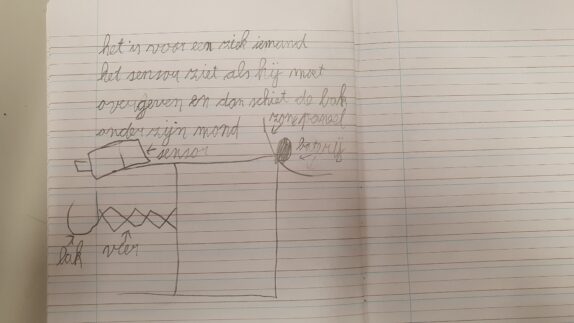 het is voor een ziek iemand
het sensou ziet als hij moet
overgeven en dan schiet de bak
onder zijn mond
zonepaneel
sensor
batrij
bak
vier